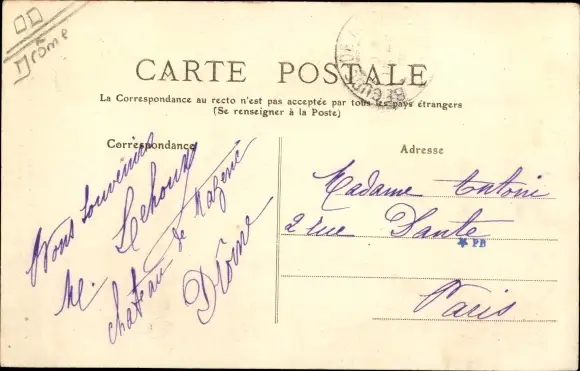 Drôme
CARTE POSTALE
La Correspondance au recto n'est pas acceptée par tous les pays étrangers
(Se renseigner à la Poste)
Correspondance
Bons souvenirs
M. Lehoux
château de Mazenc
Drôme
Adresse
Madame Antoni
2 rue Dante
PB
Paris